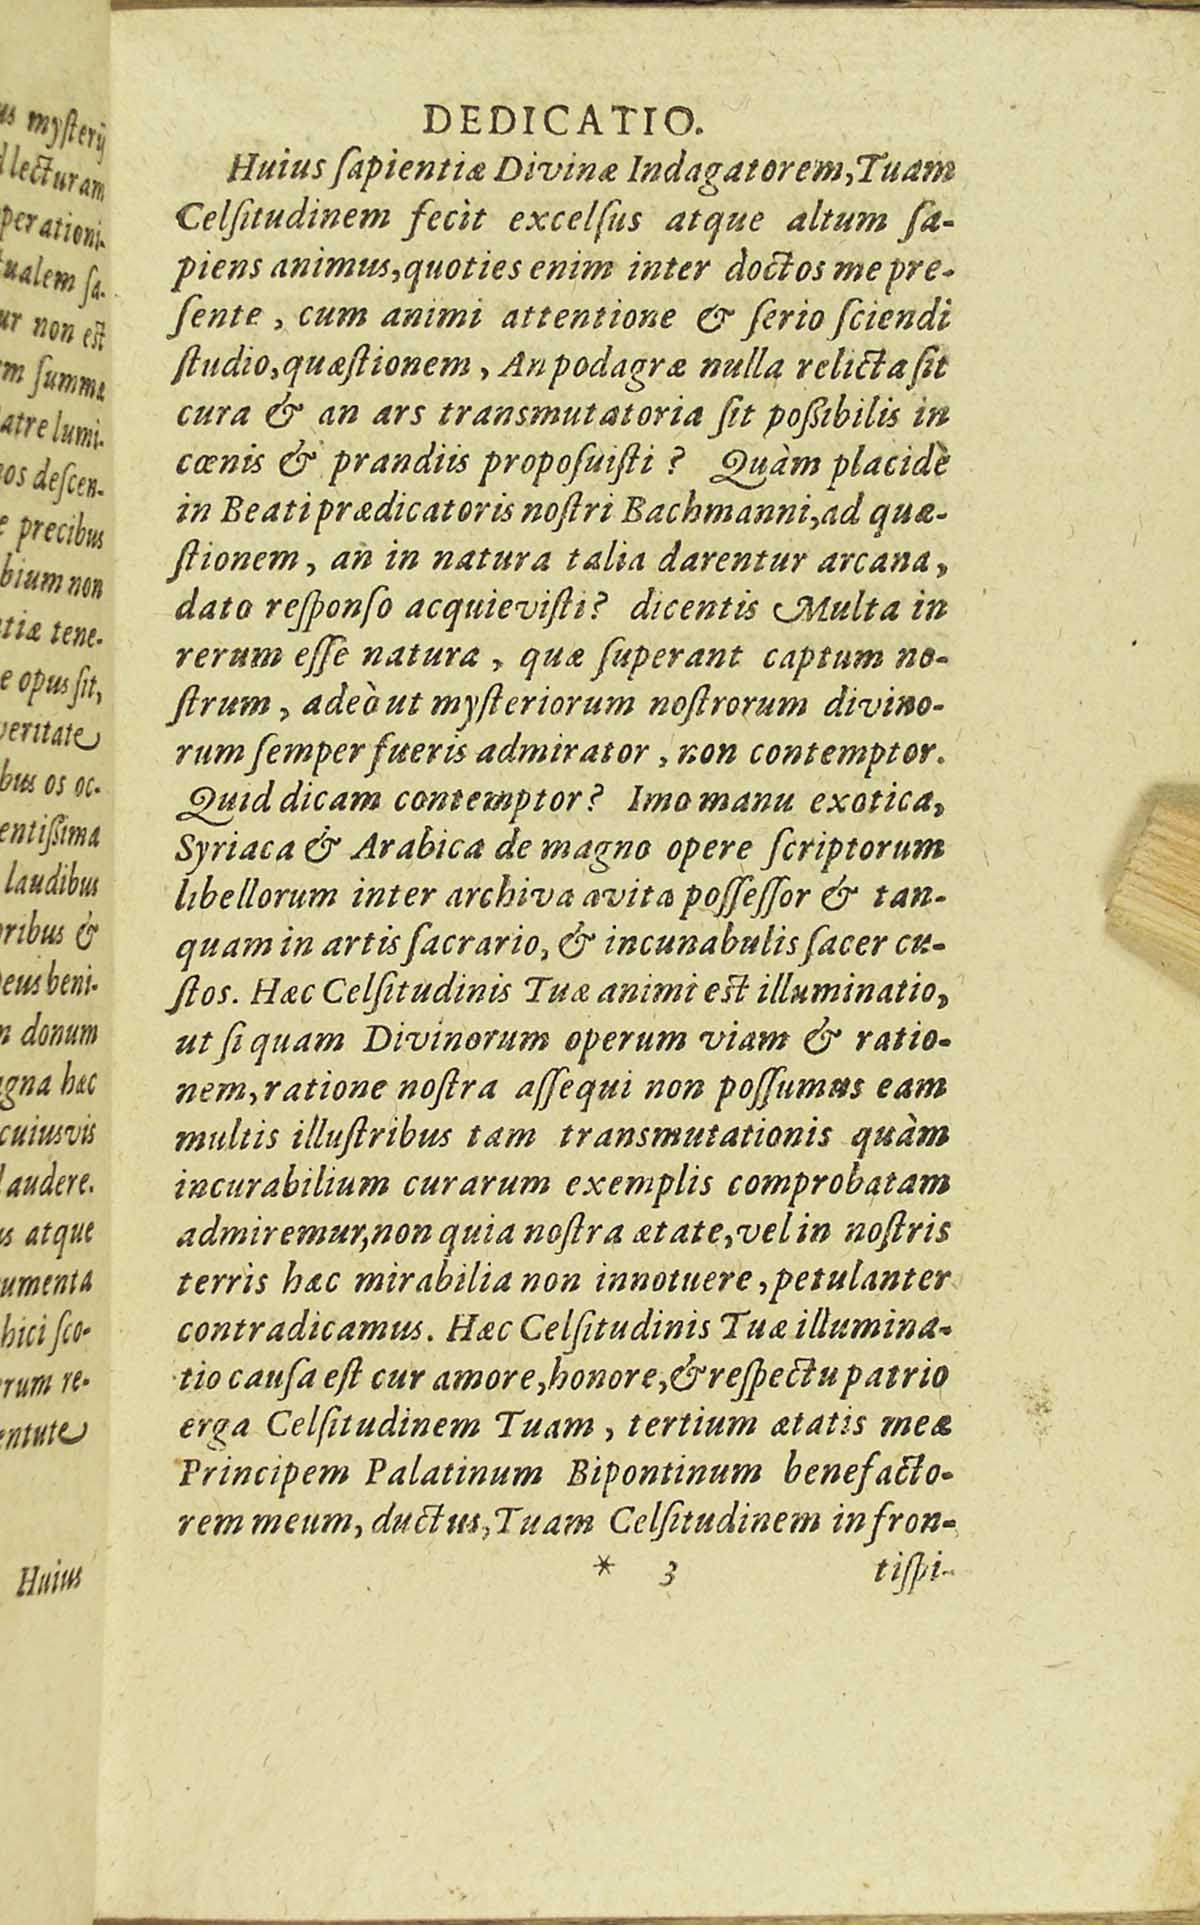 us mysterij
lecturam
perationi-
tualem sa-
ur non est
em summa
atre lumi-
nos descen-
e precibus
bium non
tiæ tene-
e opus sit,
veritate
bus os oc-
entissima
laudibus
oribus &
Deus beni-
n donum
agna hæc
cuiusvis
audere.
us atque
umenta
hici sco-
erum re-
entute
Huius
DEDICATIO.
Huius sapientiæ Divinæ Indagatorem, Tuam
Celsitudinem fecit excelsus atque altum sa-
piens animus, quoties enim inter doctos me pre-
sente, cum animi attentione & serio sciendi
studio, quæstionem, An podagræ nulla relicta sit
cura & an ars transmutatoria sit possibilis in
cœnis & prandiis proposuisti? Quàm placidè
in Beati prædicatoris nostri Bachmanni, ad quæ-
stionem, an in natura talia darentur arcana,
dato responso acquievisti? dicentis Multa in
rerum esse natura, quæ superant captum no-
strum, adeò ut mysteriorum nostrorum divino-
rum semper fueris admirator, non contemptor.
Quid dicam contemptor? Imo manu exotica,
Syriaca & Arabica de magno opere scriptorum
libellorum inter archiva avita possessor & tan-
quam in artis sacrario, & incunabulis sacer cu-
stos. Hæc Celsitudinis Tuæ animi est illuminatio,
ut si quam Divinorum operum viam & ratio-
nem, ratione nostra assequi non possumus eam
multis illustribus tam transmutationis quàm
incurabilium curarum exemplis comprobatam
admiremur, non quia nostra ætate, vel in nostris
terris hæc mirabilia non innotuere, petulanter
contradicamus. Hæc Celsitudinis Tuæ illumina-
tio causa est cur amore, honore, & respectu patrio
erga Celsitudinem Tuam, tertium ætatis meæ
Principem Palatinum Bipontinum benefacto-
rem meum, ductus, Tuam Celsitudinem in fron-
* 3 tispi-